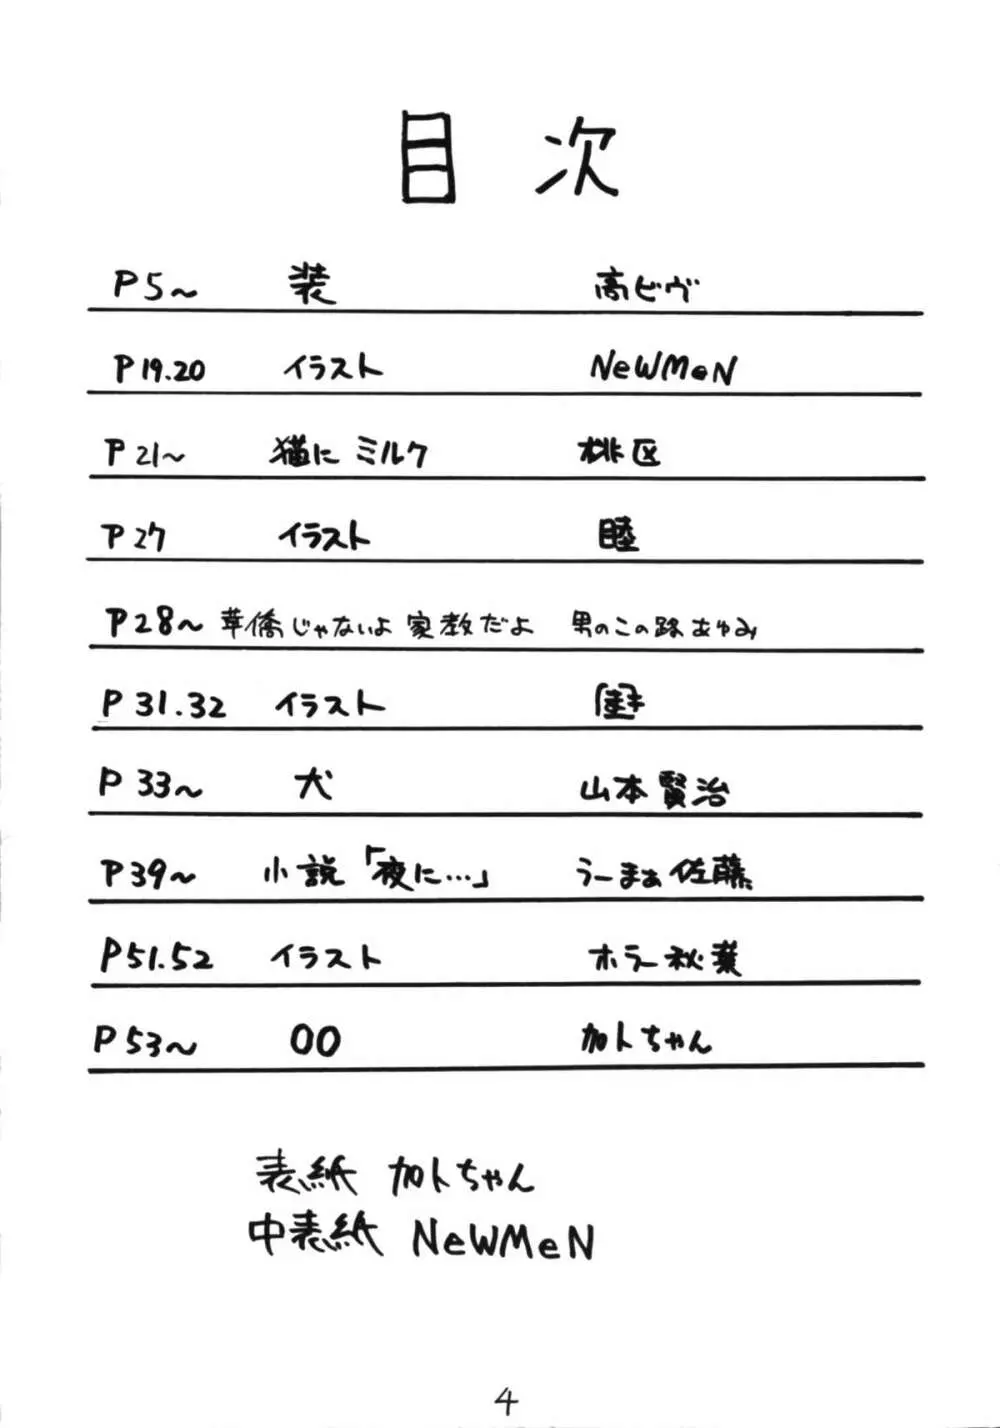 目次
P5~ 装 高ビヴ
P19.20 イラスト NeWMeN
P21~ 猫にミルク 桃区
P27 イラスト 睦
P28~ 華僑じゃないよ家教だよ 男のこの路あゆみ
P31.32 イラスト
P33~ 犬 山本賢治
P39~ 小説「夜に…」 うーまぁ佐藤
P51.52 イラスト ホラー秋葉
P53~ OO 加トちゃん
表紙 加トちゃん
中表紙 NeWMeN
4